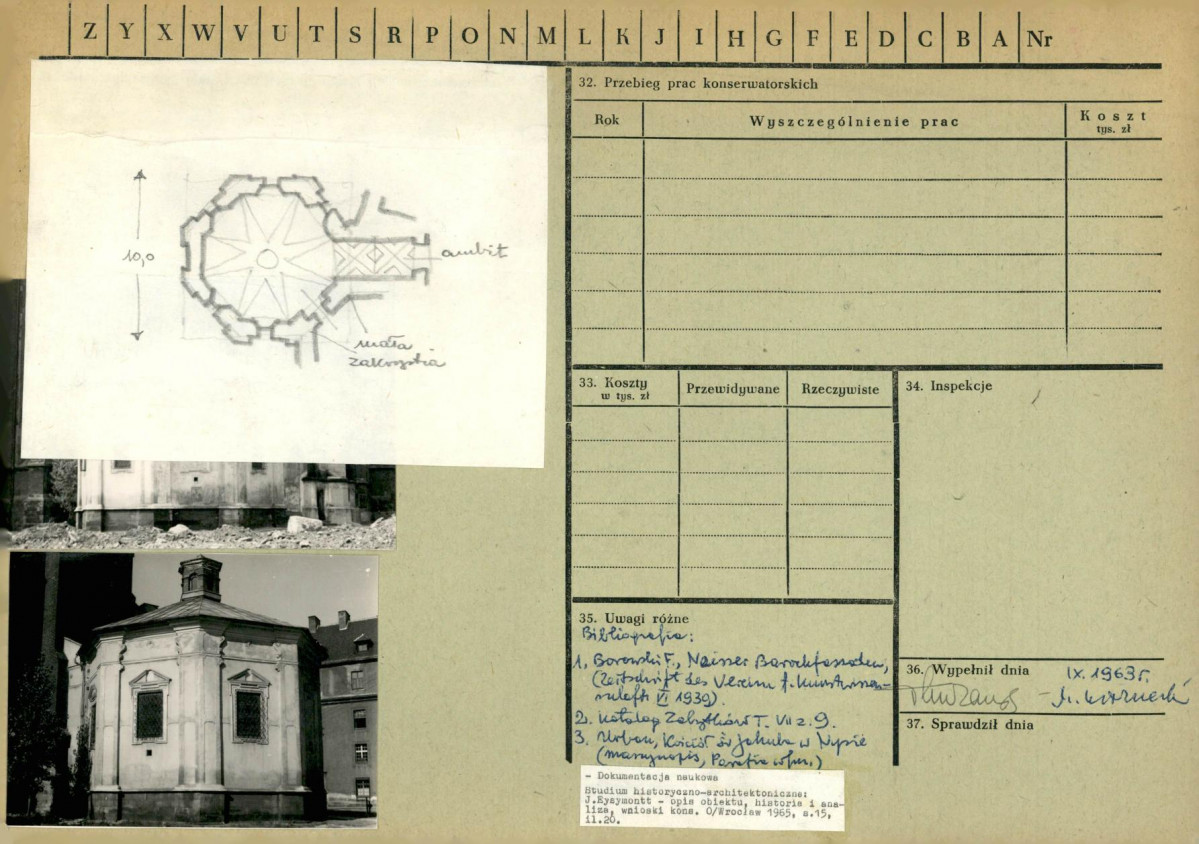 Z Y X W V U T S R P O N M L K J I H G F E D C B A Nr
10,0
ambit
mała
zakrystia
32. Przebieg prac konserwatorskich
Rok
Wyszczególnienie prac
Koszt
tys. zł
33. Koszty
w tys. zł
Przewidywane
Rzeczywiste
34. Inspekcje
35. Uwagi różne
Bibliografia:
1, Borowski F., Neisser Barockfassaden,
(Zeitschrift des Vereins f. Kunstwissen-
schaft VI 1939).
2. Katalog Zabytków T. VII z. 9.
3. Urban, Kościół św Jakuba w Nysie
(maszynopis, Parafia
36. Wypełnił dnia
IX. 1963 r.
37. Sprawdził dnia
- Dokumentacja naukowa
Studium historyczno-architektoniczne:
J.Eysymontt - opis obiektu, historia i ana-
liza, wnioski kons. O/Wrocław 1965, s.15,
il.20.